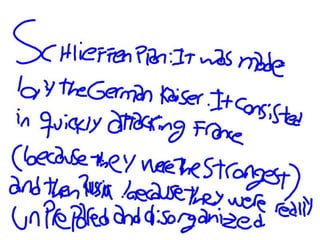 Schlieffen Plan: It was made
by the German Kaiser. It consisted
in quickly attacking France
(because they were the strongest)
and then Russia because they were really
unprepared and disorganized